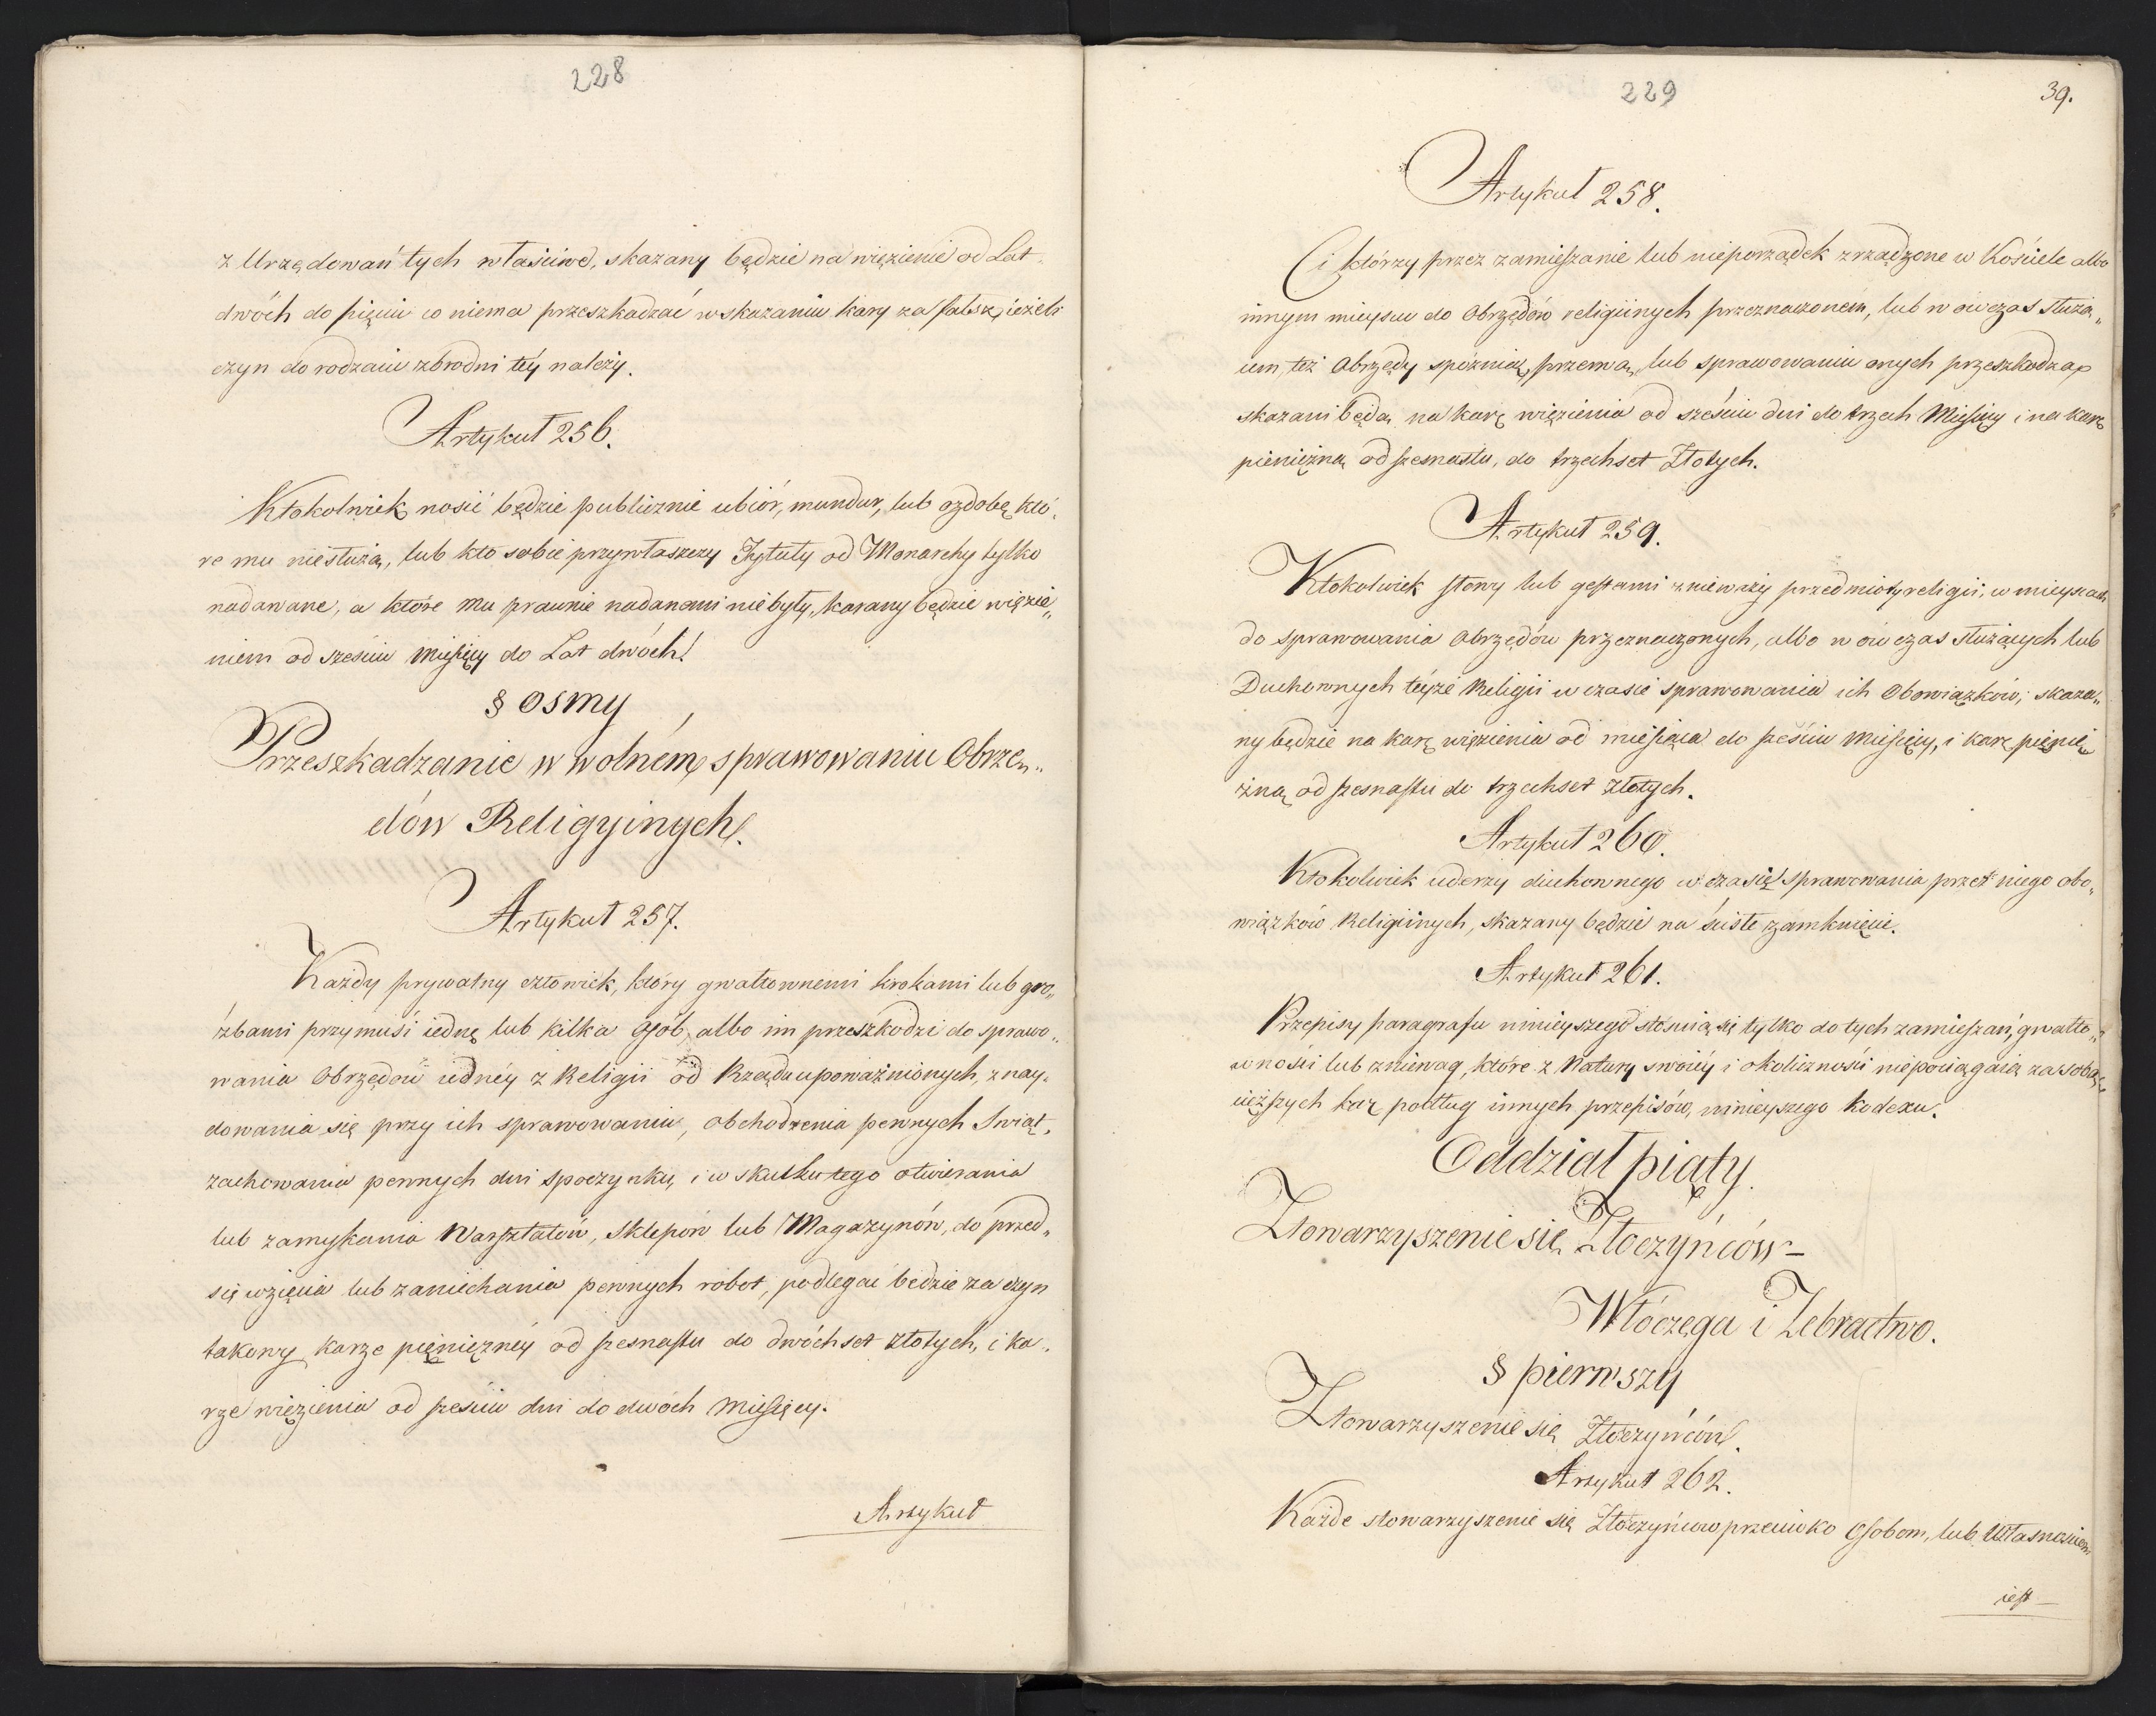 228
z Urzędowań tych właściwe, skazany będzie na więzienie od Lat
dwóch do pięciu co niema przeszkadzać wskazaniu kary za fałsz, ieżeli
czyn do rodzaiu zbrodni téy należy.
Artykuł 256.
Ktokolwiek nosić będzie publicznie ubiór, mundur, lub ozdobę, któ„
re mu niesłużą, lub kto sobie przywłaszczy Tytuły od Monarchy tylko
nadawane, a które mu prawnie nadanemi niebyły, karany będzie więzie„
niem od sześciu miesięcy do Lat dwóch.
§ osmy
Przeszkadzanie w wolném sprawowaniu Obrzę„
dów Religyinych.
Artykuł 257.
Każdy prywatny człowiek, który gwałtownemi krokami lub gro„
źbami przymusi iednę lub kilka osób, albo im przeszkodzi do sprawo„
wania Obrzędów iednéy z Religii od Rządu upoważnionych, znay„
dowania się przy ich sprawowaniu, obchodzenia pewnych Swiąt,
zachowania pewnych dni spoczynku, i w skutku tego otwierania
lub zamykania Warsztatów, Sklepów lub Magazynów, do przed„
się wzięcia lub zaniechania pewnych robot, podlegać będzie za czyn
takowy karze pieniężnéy od szesnastu do dwóchset złotych, i ka„
rze więzienia od sześciu dni do dwóch miesięcy.
Artykuł
229
39.
Artykuł 258.
Ci którzy przez zamieszanie lub nieporządek zrządzone w Kościele albo
innym mieyscu do Obrzędów religiinych przeznaczoném, lub w ów czas służą„
cem, też Obrzędy spóźnią, przerwą, lub sprawowaniu onych przeszkodzą,
skazani będą na karę więzienia od sześciu dni do trzech Miesięcy i na karę
pieniężną od szesnastu, do trzechset Złotych.
Artykuł 259.
Ktokolwiek słowy lub gestami znieważy przedmioty religii, w mieyscach
do sprawowania Obrzędów przeznaczonych, albo w ów czas służących lub
Duchownych téyże Religii w czasie sprawowania ich Obowiązków, skaza„
ny będzie na karę więzienia od miesiąca do sześciu miesięcy, i karę pienię
żną od szesnastu do trzechset złotych.
Artykuł 260.
Ktokolwiek uderzy duchownego w czasie sprawowania przez niego obo„
wiązków Religiinych, skazany będzie na ściste zamknięcie.
Artykuł 261.
Przepisy paragrafu ninieyszego stosuią się tylko do tych zamieszań, gwałto„
wności lub zniewag, które z Natury swoiéy i okoliczności niepociągaią za sobą
cięższych kar podług innych przepisów, ninieyszego Kodexu.
Oddział piąty.
Stowarzyszenie się Złoczyńców –
Włóczęga i Żebractwo.
§ pierwszy
Stowarzyszenie się Złoczyńców.
Artykuł 262.
Każde stowarzyszenie się Złoczyńców przeciwko Osobom, lub Własnościom
iest